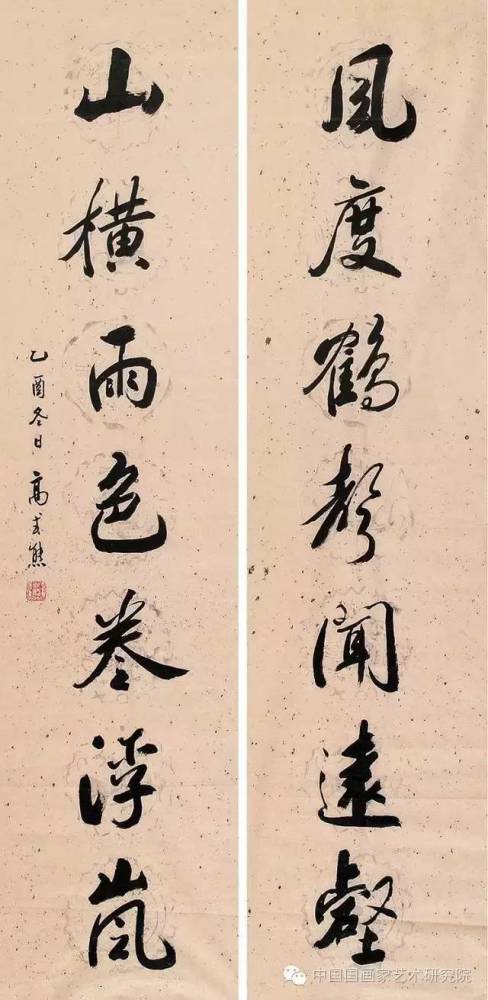 風度鶴聲聞遠壑
山橫雨色卷浮嵐
乙酉冬日 高式熊
中国国画家艺术研究院